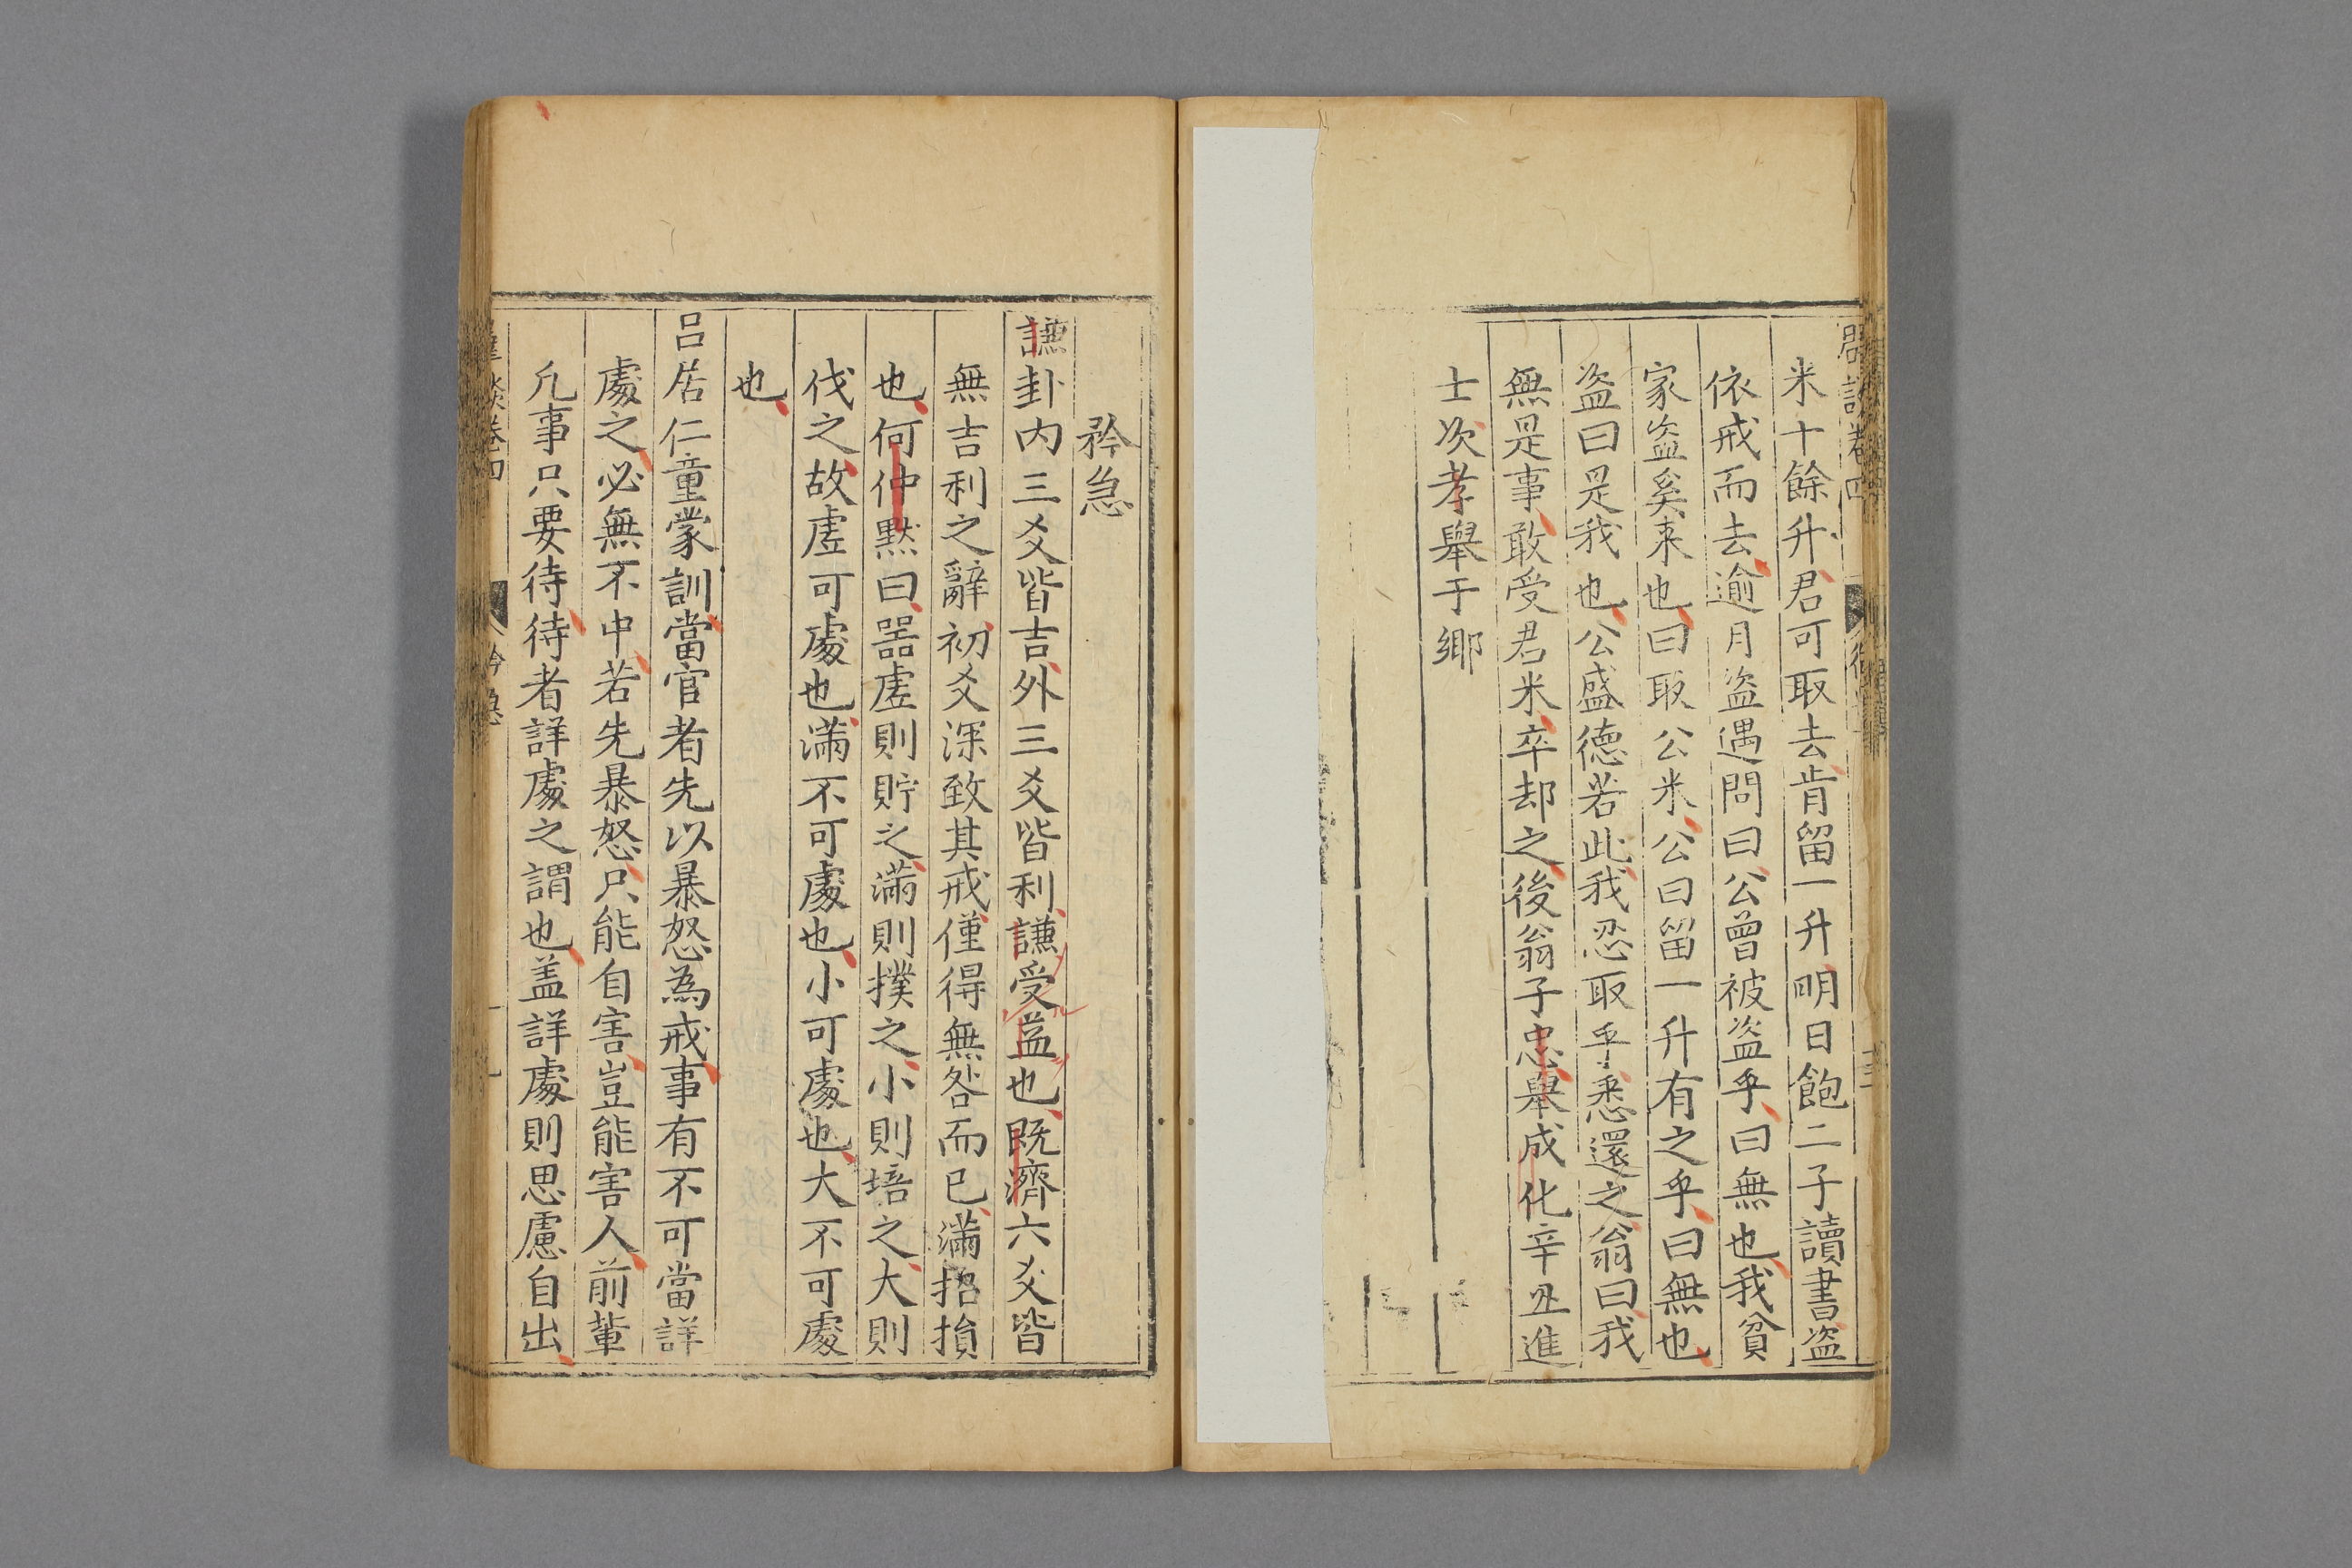 米十餘升君可取去肯留一升明日飽二子讀書盗
依戒而去逾月盗遇問曰公曾被盗乎曰無也我貧
家盗奚来也曰取公米公曰留一升有之乎曰無也
盗曰是我也公盛德若此我忍取乎悉還之翁曰我
無是事敢受君米卒却之後翁子忠舉成化辛丑進
士次孝舉于鄉
矜急
謙卦内三爻皆吉外三爻皆利謙受益也既濟六爻皆
無吉利之辭初爻深致其戒僅得無咎而已滿招損
也何仲黙曰噐虗則貯之滿則撲之小則培之大則
伐之故虗可處也滿不可處也小可處也大不可處
也
吕居仁童蒙訓當官者先以暴怒為戒事有不可當詳
處之必無不中若先暴怒只能自害豈能害人前軰
凡事只要待待者詳處之謂也盖詳處則思慮自出
卷四 矜急